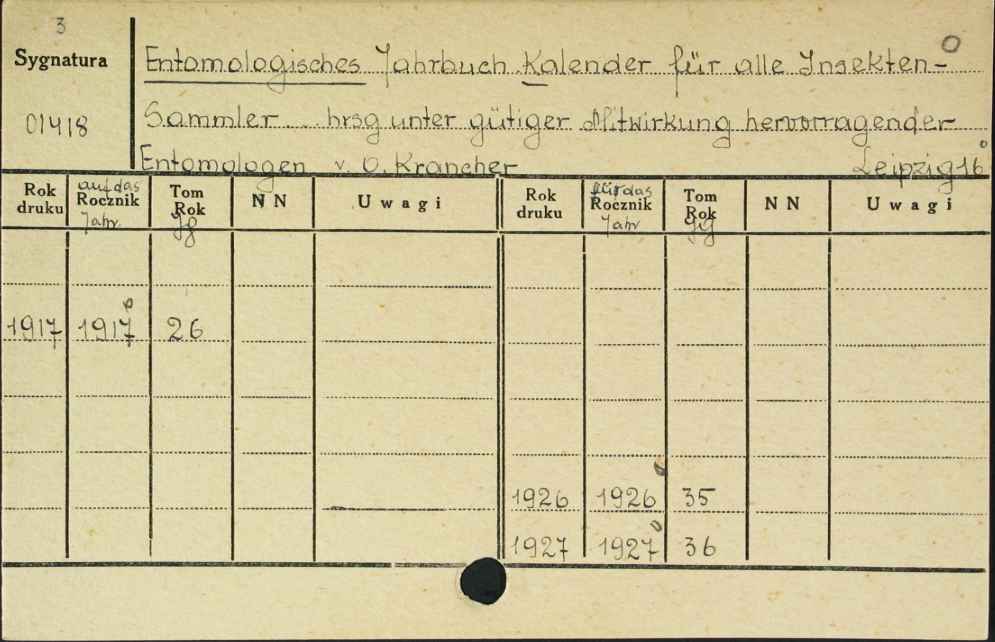 3
Sygnatura
01418
Entomologisches Jahrbuch. Kalender für alle Insekten-
Sammler ... hrsg unter gütiger Mitwirkung hervorragender
Entomologen v. O. Krancher Leipzig 16°
Rok druku
auf das
Rocznik
Jahr
Tom
Rok
Jg
NN
Uwagi
Rok druku
für das
Rocznik
Jahr
Tom
Rok
Jg
NN
Uwagi
1917 1917 26
1926 1926 35
1927 1927 36